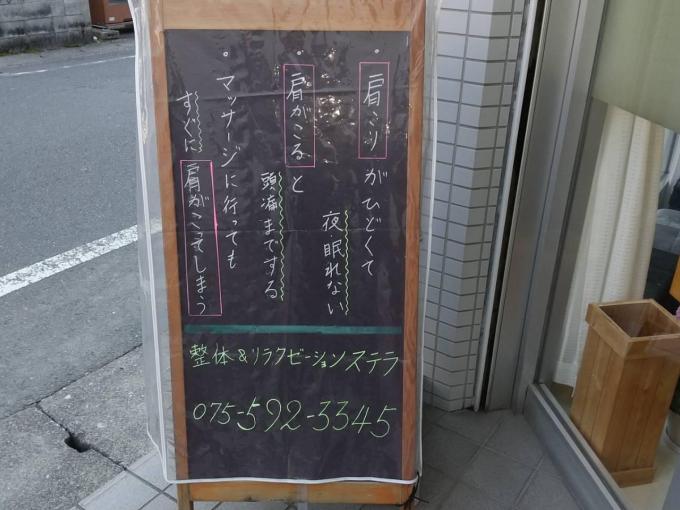 ・肩こりがひどくて
夜眠れない
・肩がこると
頭痛までする
・マッサージに行っても
すぐに肩がこってしまう
整体&リラクゼーションステラ
075-592-3345